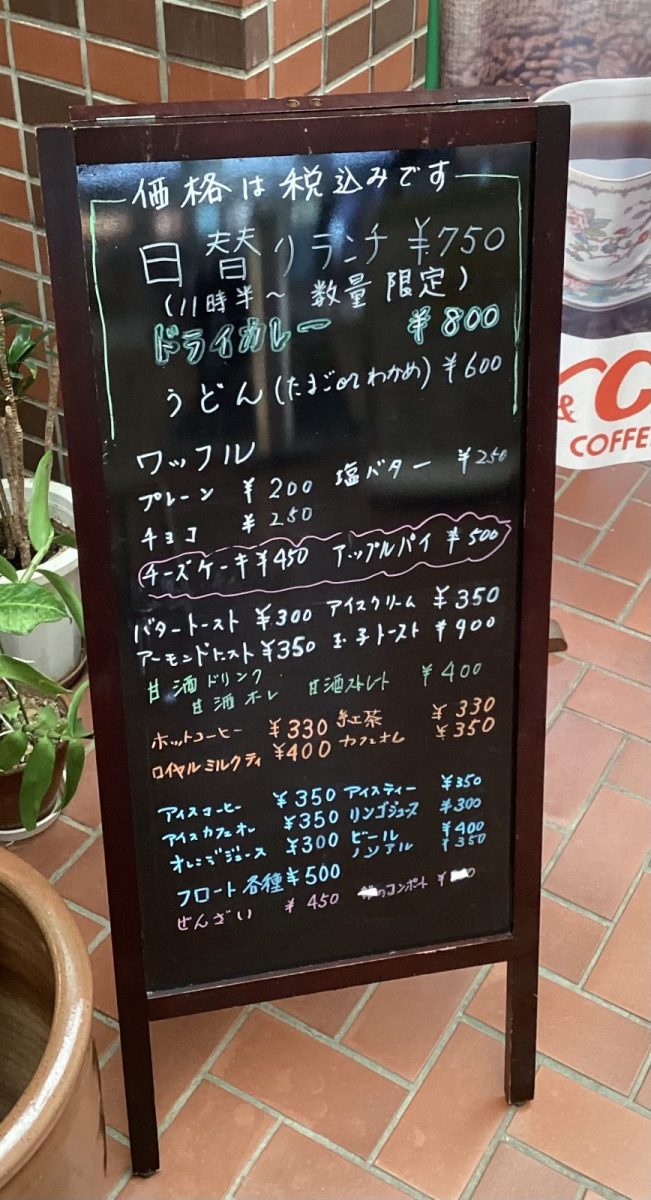 価格は税込みです
日替りランチ ¥750
(11時半～ 数量 限定)
ドライカレー ¥800
うどん(たまごorわかめ) ¥600
ワッフル
プレーン ¥200 塩バター ¥250
チョコ ¥250
チーズケーキ ¥450 アップルパイ ¥500
バタートースト ¥300 アイスクリーム ¥350
アーモンドトースト ¥350 玉子トースト ¥400
甘酒ドリンク
甘酒オレ 甘酒ストレート ¥400
ホットコーヒー ¥330 紅茶 ¥330
ロイヤルミルクティ ¥400 カフェオレ ¥350
アイスコーヒー ¥350 アイスティー ¥350
アイスカフェオレ ¥350 リンゴジュース ¥300
オレンジジュース ¥300 ビール ¥400
ノンアル ¥350
フロート各種 ¥500
ぜんざい ¥450 のコンポート ¥
& C
COFFE